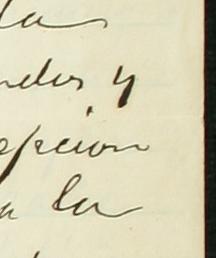 la
ndos y
epcion
a la